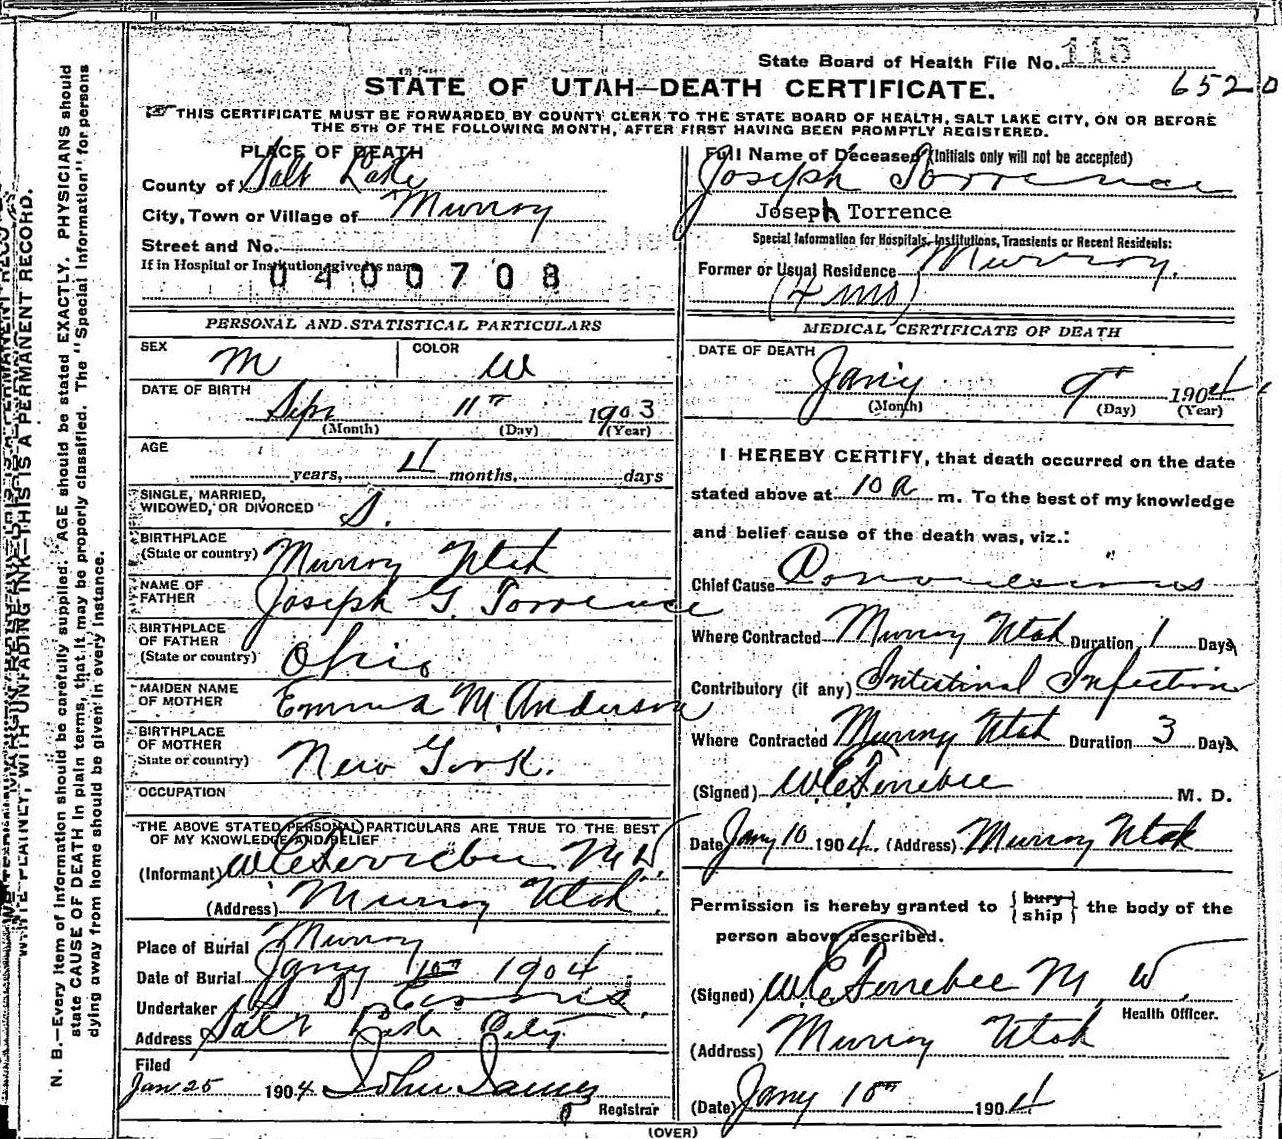 State Board of Health File No. 115
6520
STATE OF UTAH—DEATH CERTIFICATE.
THIS CERTIFICATE MUST BE FORWARDED BY COUNTY CLERK TO THE STATE BOARD OF HEALTH, SALT LAKE CITY, ON OR BEFORE
THE 5TH OF THE FOLLOWING MONTH, AFTER FIRST HAVING BEEN PROMPTLY REGISTERED.
PLACE OF DEATH
County of Salt Lake
City, Town or Village of Murray
Street and No.
If in Hospital or Institution, give its name
0400708
PERSONAL AND STATISTICAL PARTICULARS
SEX M COLOR W
DATE OF BIRTH
Sept 11th 1903
(Month) (Day) (Year)
AGE
years, 4 months, days
SINGLE, MARRIED,
WIDOWED, OR DIVORCED S.
BIRTHPLACE
(State or country) Murray Utah
NAME OF
FATHER Joseph G. Torrence
BIRTHPLACE
OF FATHER
(State or country) Ohio
MAIDEN NAME
OF MOTHER Emma M. Anderson
BIRTHPLACE
OF MOTHER
State or country) New York.
OCCUPATION
THE ABOVE STATED PERSONAL PARTICULARS ARE TRUE TO THE BEST
OF MY KNOWLEDGE AND BELIEF
(Informant) W E Ferrebee M D.
(Address) Murray Utah.
Place of Burial Murray
Date of Burial Jany 10th 1904
Undertaker
Address Salt Lake City
Filed
Jan 25 1904 John James
Registrar
(OVER)
Full Name of Deceased (Initials only will not be accepted)
Joseph Torrence
Joseph Torrence
Special Information for Hospitals, Institutions, Transients or Recent Residents:
Former or Usual Residence Murray.
(4 mos)
MEDICAL CERTIFICATE OF DEATH
DATE OF DEATH
Jan'y 9th 1904
(Month) (Day) (Year)
I HEREBY CERTIFY, that death occurred on the date
stated above at 10 a m. To the best of my knowledge
and belief cause of the death was, viz.:
Chief Cause Convulsions
Where Contracted Murray Utah Duration 1 Days
Contributory (if any) Intestinal Infection
Where Contracted Murray Utah Duration 3 Days
(Signed) W E Ferrebee M. D.
Date Jany 10 1904. (Address) Murray Utah
Permission is hereby granted to {bury ship} the body of the
person above described.
(Signed) W E Ferrebee M D.
Health Officer.
(Address) Murray Utah
(Date) Jany 10th 1904
WRITE PLAINLY, WITH UNFADING INK—THIS IS A PERMANENT RECORD.
N. B.—Every item of information should be carefully supplied. AGE should be stated EXACTLY. PHYSICIANS should
state CAUSE OF DEATH in plain terms, that it may be properly classified. The "Special Information" for persons
dying away from home should be given in every instance.